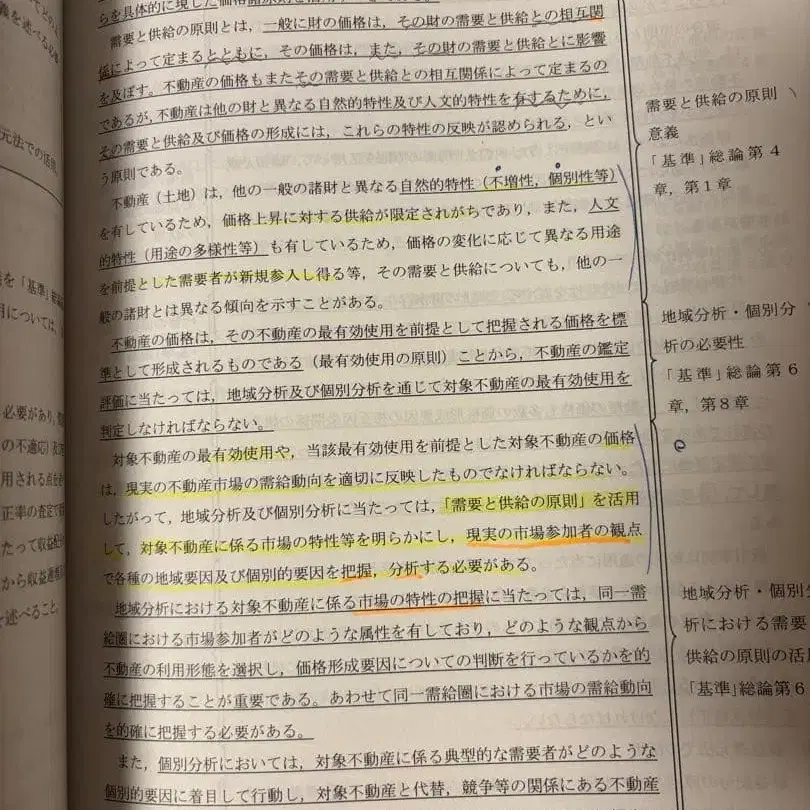 らを具体的に現した価格諸原則を
需要と供給の原則とは，一般に財の価格は，その財の需要と供給との相互関
係によって定まるとともに，その価格は，また，その財の需要と供給とに影響
を及ぼす。不動産の価格もまたその需要と供給との相互関係によって定まるの
であるが，不動産は他の財と異なる自然的特性及び人文的特性を有するために，
その需要と供給及び価格の形成には，これらの特性の反映が認められる，とい
う原則である。
不動産（土地）は，他の一般の諸財と異なる自然的特性（不増性，個別性等）
を有しているため，価格上昇に対する供給が限定されがちであり，また，人文
的特性（用途の多様性等）も有しているため，価格の変化に応じて異なる用途
を前提とした需要者が新規参入し得る等，その需要と供給についても，他の一
般の諸財とは異なる傾向を示すことがある。
不動産の価格は，その不動産の最有効使用を前提として把握される価格を標
準として形成されるものである（最有効使用の原則）ことから，不動産の鑑定
評価に当たっては，地域分析及び個別分析を通じて対象不動産の最有効使用を
判定しなければならない。
対象不動産の最有効使用や，当該最有効使用を前提とした対象不動産の価格
は，現実の不動産市場の需給動向を適切に反映したものでなければならない。
したがって，地域分析及び個別分析に当たっては，「需要と供給の原則」を活用
して，対象不動産に係る市場の特性等を明らかにし，現実の市場参加者の観点
で各種の地域要因及び個別的要因を把握，分析する必要がある。
地域分析における対象不動産に係る市場の特性の把握に当たっては，同一需
給圏における市場参加者がどのような属性を有しており，どのような観点から
不動産の利用形態を選択し，価格形成要因についての判断を行っているかを的
確に把握することが重要である。あわせて同一需給圏における市場の需給動向
を的確に把握する必要がある。
また，個別分析においては，対象不動産に係る典型的な需要者がどのような
個別的要因に着目して行動し，対象不動産と代替，競争等の関係にある不動産
需要と供給の原則
意義
「基準」総論第４
章，第１章
地域分析・個別分
析の必要性
「基準」総論第６
章，第８章
e
地域分析・個別分
析における需要
供給の原則の活
「基準」総論第６
義を述べる必
元法での活用
を「基準」総
用については，
必要があり，
の不適応）及
用される点を
正率の査定で
たって収益
から収益
を述べること。